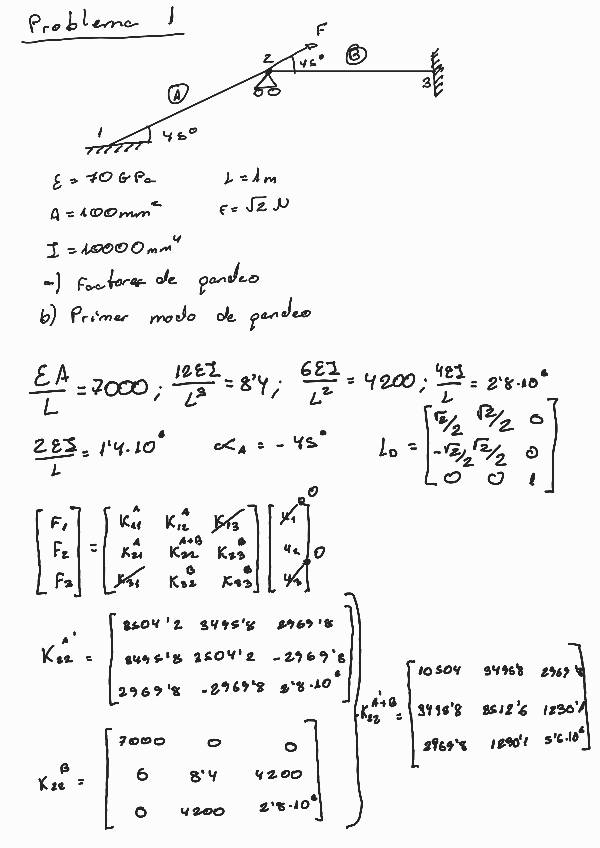 Problema 1
F
2 45° B
A 3
1 45°
E = 70 GPa L = 1m
A = 100 mm² F = √2 N
I = 10000 mm⁴
a) Factores de pandeo
b) Primer modo de pandeo
EA/L = 7000 ; 12EI/L³ = 8'4 ; 6EI/L² = 4200 ; 4EI/L = 2'8·10⁶
2EI/L = 1'4·10⁶ α_A = -45° L_D = [√2/2 √2/2 0
-√2/2 √2/2 0
0 0 1]
[F₁ = [K₁₁^A K₁₂^A K₁₃ [u₁ 0
F₂ K₂₁^A K₂₂^A+B K₂₃^B u₂ 0
F₃] K₃₁ K₃₂^B K₃₃^B] u₃]
K₂₂^A' = [3504'2 3495'8 2969'8
3495'8 3504'2 -2969'8
2969'8 -2969'8 2'8·10⁶]
K₂₂^A'+B = [10504 3495'8 2969'8
3495'8 3512'6 1230'1
2969'8 1230'1 5'6·10⁶]
K₂₂^B = [7000 0 0
0 8'4 4200
0 4200 2'8·10⁶]